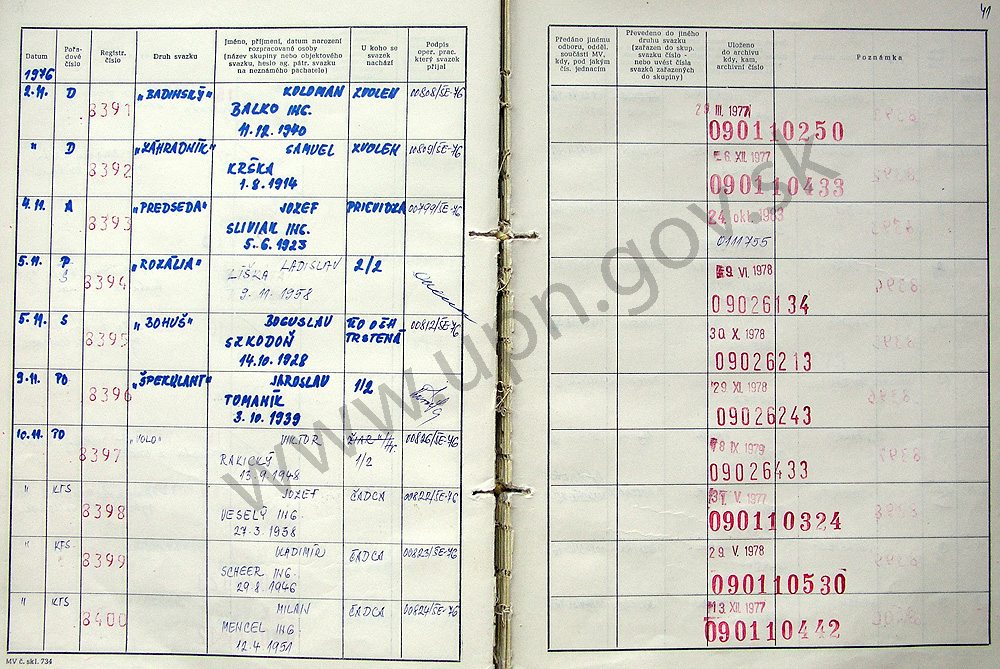 41
Datum
Pořa-
dové
číslo
Registr.
číslo
Druh svazku
Jméno, příjmení, datum narození
rozpracované osoby
(název skupiny nebo objektového
svazku, heslo ag. pátr. svazku
na neznámého pachatele)
U koho se
svazek
nachází
Podpis
oper. prac.
který svazek
přijal
Předáno jinému
odboru, odděl.
součásti MV,
kdy, pod jakým
čís. jednacím
Převedeno do jiného
druhu svazku
(zařazen do skup.
svazku číslo -
nebo uvést čísla
svazků zařazených
do skupiny)
Uloženo
do archivu
kdy, kam,
archivní číslo
Poznámka
1976
2.11. D 8391 "BADINSKÝ" KOLOMAN ZVOLEN 00808/ŠE-76 III. 1977
BALKO ING. 090110250
11.12.1940
" D 8392 "ZÁHRADNÍK" SAMUEL ZVOLEN 00809/ŠE-76 6. XII. 1977
KRŠKA 090110433
1.8.1914
4.11. A 8393 "PREDSEDA" JOZEF PRIEVIDZA 00799/ŠE-76 24. okt. 1983
SLIVIAK ING. 0111755
5.6.1923
5.11. P 8394 "ROZÁLIA" LADISLAV 2/2 9. VI. 1978
Š LÍŠKA 09026134
9.11.1958
5.11. S 8395 "BOHUŠ" BOGUSLAV OO OCK 00812/ŠE-76 30. X. 1978
SZKODOŇ TRSTENÁ 09026213
14.10.1928
9.11. PO 8396 "ŠPEKULANT" JAROSLAV 1/2 29. XI. 1978
TOMANÍK 09026243
3.10.1939
10.11. PO 8397 "VOLO" VIKTOR 00826/ŠE-76 IX 1979
RAKICKÝ 1/2 09026433
13.9.1948
" KTS 8398 JOZEF ČADCA 00822/ŠE-76 V. 1977
VESELÝ ING. 090110324
27.3.1938
" KTS 8399 VLADIMÍR ČADCA 00823/ŠE-76 29. V. 1978
SCHEER ING. 090110530
29.8.1946
" KTS 8400 MILAN ČADCA 00824/ŠE-76 13. XII. 1977
MENCEL ING. 090110442
12.4.1951
MV č. skl. 734
www.upn.gov.sk